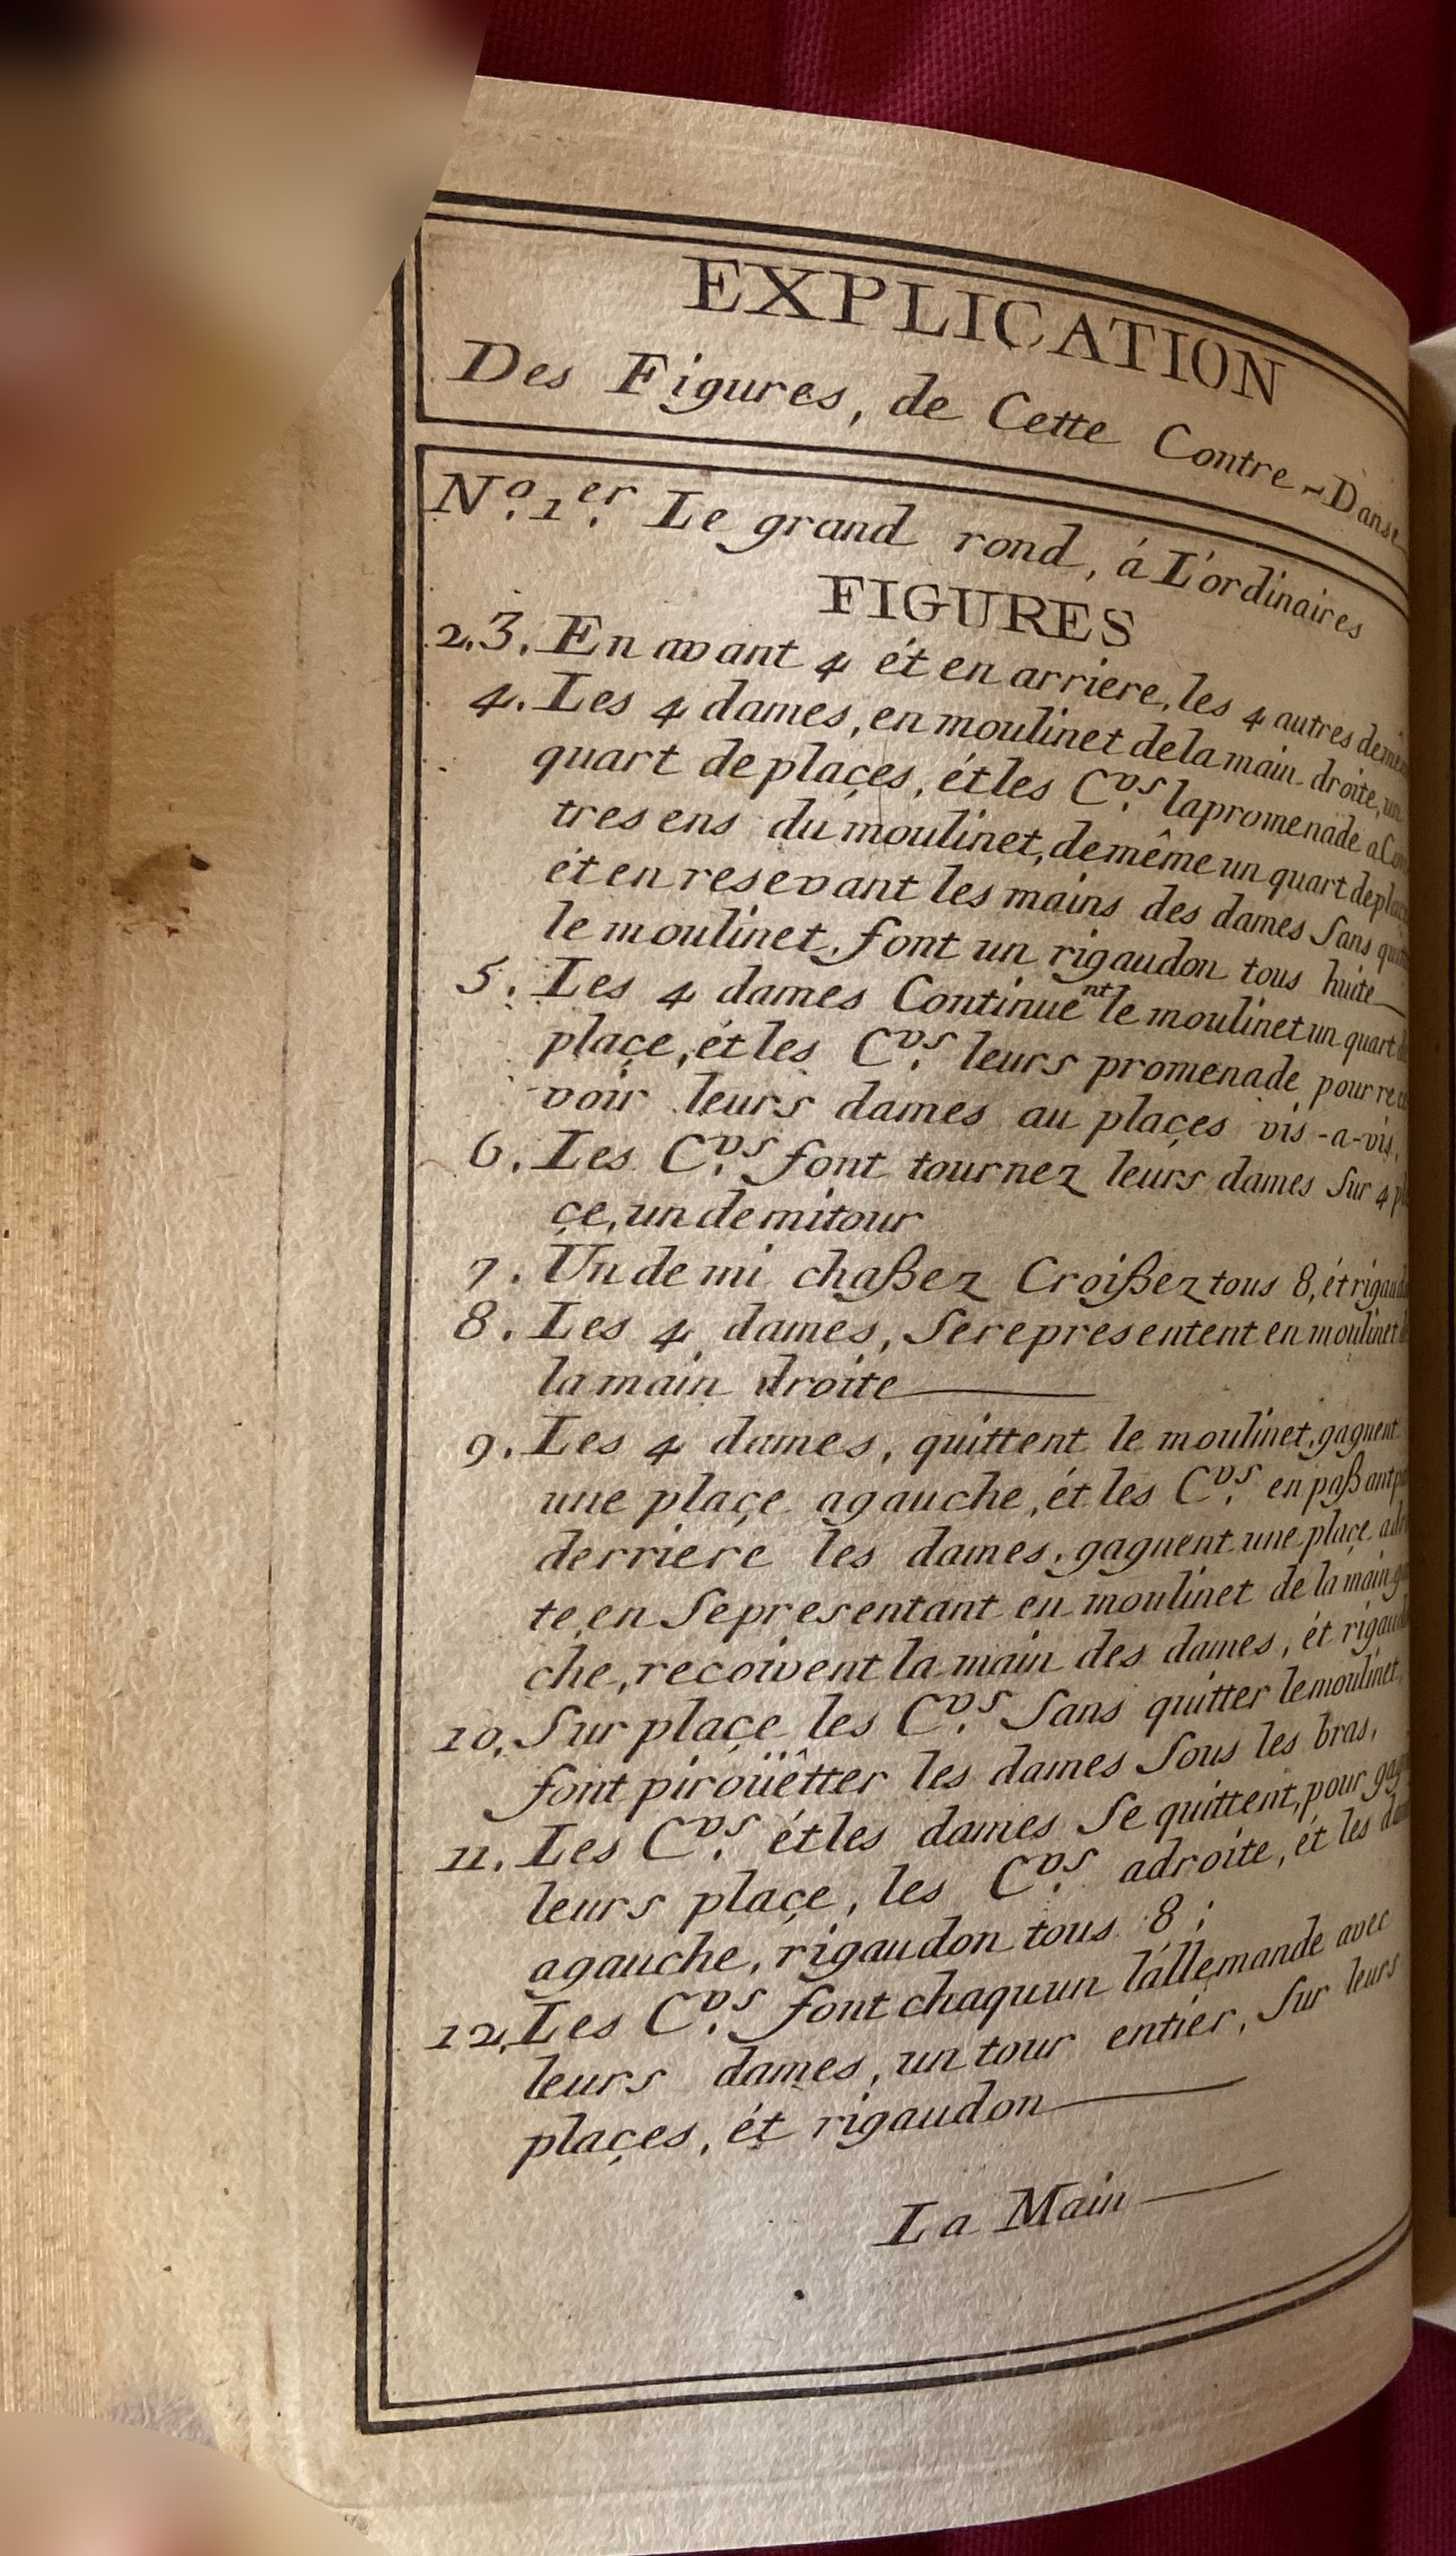 EXPLICATION
Des Figures, de Cette Contre-Danse
N.º 1.er Le grand rond, á L'ordinaires
FIGURES
2.3. En avant 4 ét en arriere, les 4 autres
4. Les 4 dames, en moulinet de la main droite, un
quart de plaçes, ét les C.vs la promenade
tresens du moulinet, de même un quart de
ét en resevant les mains des dames Sans
le moulinet, font un rigaudon tous huite
5. Les 4 dames Continuent le moulinet un quart
plaçe, ét les C.vs leurs promenade pour
voir leurs dames au plaçes vis-a-vis.
6. Les C.vs font tournez leurs dames Sur 4
çe, un demi tour
7. Un demi chaßez Croißez tous 8, ét
8. Les 4 dames, Se representent en moulinet
la main droite
9. Les 4 dames, quittent le moulinet, gagnent
une plaçe agauche, ét les C.vs en paßant
derriere les dames, gagnent une plaçe
te, en Se presentant en moulinet de la main
che, recoivent la main des dames, ét
10. Sur plaçe les C.vs Sans quitter le moulinet,
font piroüêtter les dames Sous les bras,
11. Les C.vs ét les dames Se quittent, pour
leurs plaçe, les C.vs adroite, ét les
agauche, rigaudon tous 8;
12. Les C.vs font chaquun l'allemande avec
leurs dames, un tour entier, Sur leurs
plaçes, ét rigaudon
La Main